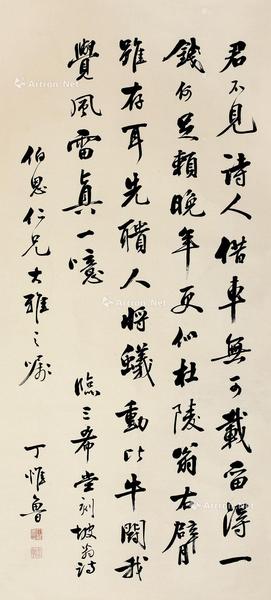 君不見詩人借車無可載留得一
錢何足賴晚年更似杜陵翁右臂
雖存耳先聵人將蟻動作牛鬭我
覺風雷真一噫
臨三希堂刻坡翁詩
伯思仁兄大雅之屬
丁惟魯